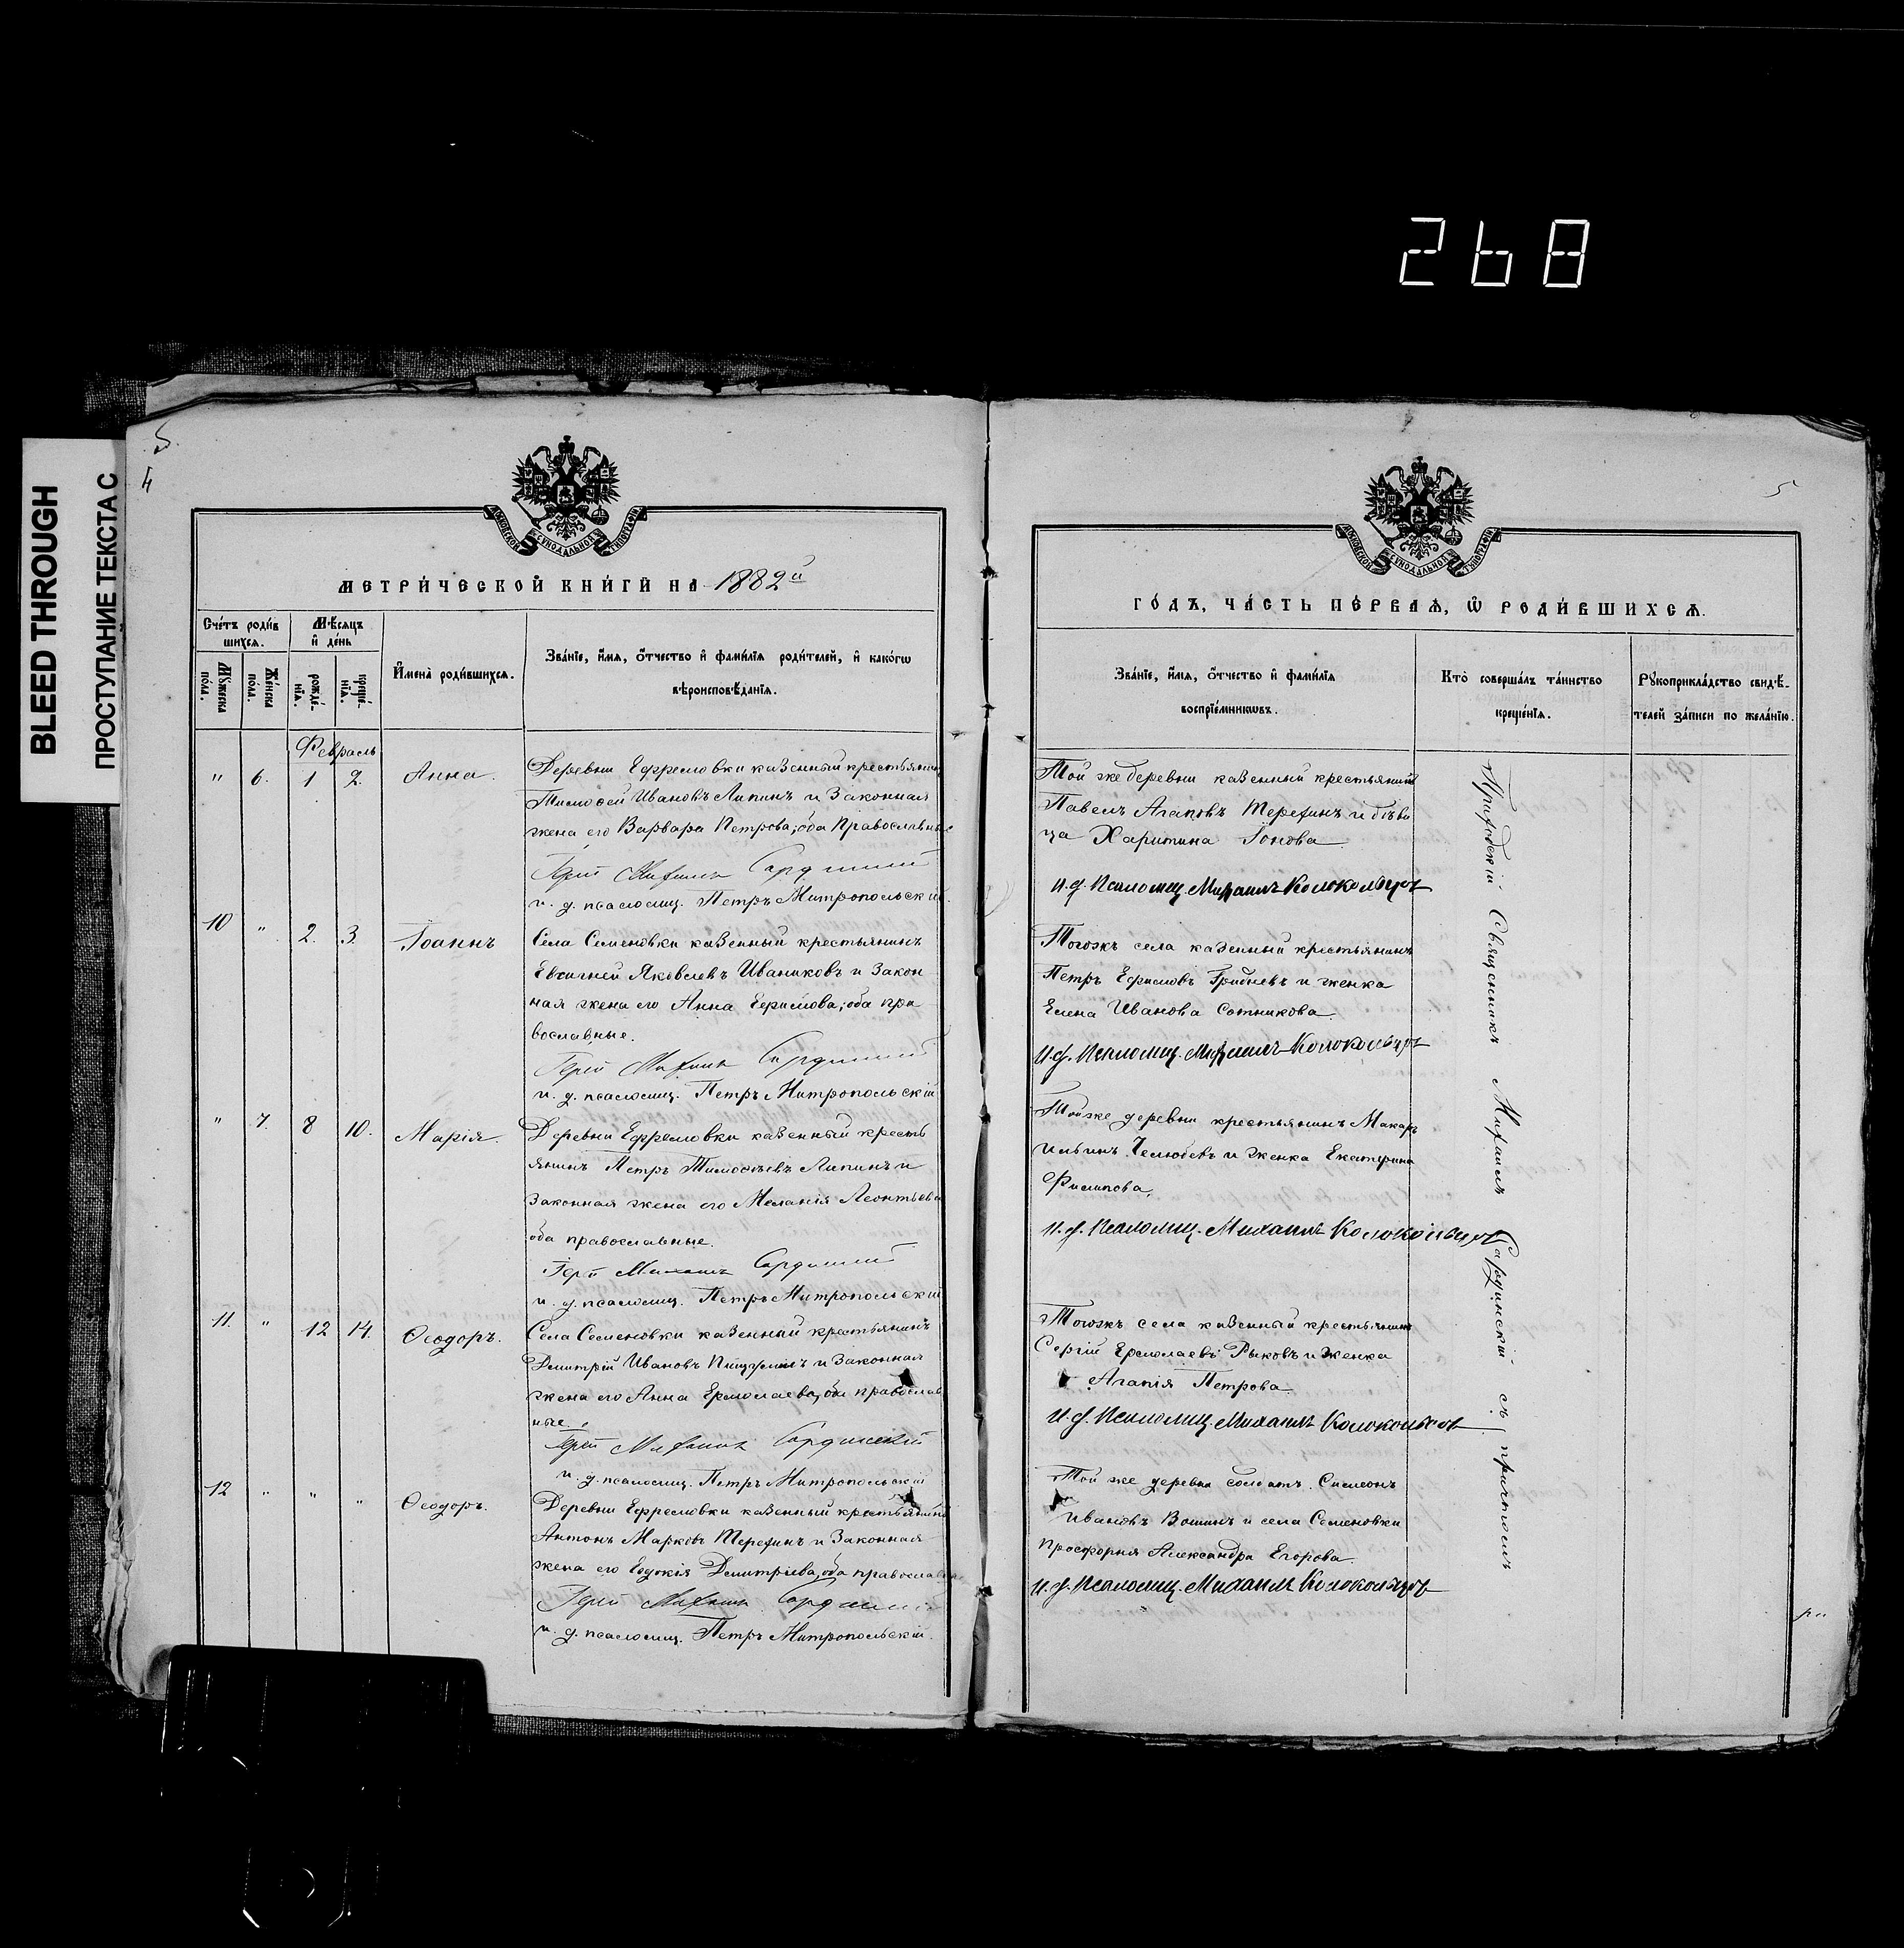 268
BLEED THROUGH
ПРОСТУПАНИЕ ТЕКСТА С
5
4
МОСКОВСКОЙ СѴНОДАЛЬНОЙ ТИПОГРАФІИ
МЕТРИ́ЧЕСКОЙ КНИ́ГИ НА 1882й
Сче́тъ роди́в
шихся.
Мѣсяцъ
и де́нь
Му́жеска
по́ла.
Же́нска
по́ла.
рожде́-
нїя.
креще́-
нїя.
Имена̀ роди́вшихся.
Зва́нїе, и́мя, о́тчество и фами́лїя роди́телей, и како́гѡ
вѣроисповѣ́данїя.
Февраль
" 6. 1 2. Анна.
Деревни Ефремовки казенный крестьянинъ
Тимоѳей Ивановъ Липинъ и законная
жена его Варвара Петрова; оба православные
Іерей Михаилъ Сардинскій
и. д. псаломщ. Петръ Митропольскій.
10 " 2. 3. Іоаннъ
Села Семеновки казенный крестьянинъ
Евсигней Яковлевъ Иваниковъ и закон
ная жена его Анна Ефимова; оба пра
вославные.
Іерей Михаилъ Сардинскій
и. д. псаломщ. Петръ Митропольскій
" 7. 8 10. Марія.
Деревни Ефремовки казенный кресть
янинъ Петръ Тимоѳѣевъ Липинъ и
законная жена его Меланія Леонтьева
оба православные.
Іерей Михаилъ Сардинскій
и. д. псаломщ. Петръ Митропольскій
11. " 12 14. Ѳеодоръ.
Села Семеновки казенный крестьянинъ
Димитрій Ивановъ и законная
жена его Анна Ермолаева, оба православ
ные.
Іерей Михаилъ Сардинскій
и. д. псаломщ. Петръ Митропольскій
12 " " " Ѳеодоръ.
Деревни Ефремовки казенный крестьянинъ
Антонъ Марковъ Терехинъ и законная
жена его Евдокія Димитріева, оба православные
Іерей Михаилъ Сардинскій
и. д. псаломщ. Петръ Митропольскій.
5
МОСКОВСКОЙ СѴНОДАЛЬНОЙ ТИПОГРАФІИ
ГО́ДЪ, ЧА́СТЬ ПЕ́РВАЯ, Ѡ РОДИ́ВШИХСЯ.
Зва́нїе, и́мя, о́тчество и фами́лїя
воспрїе́мникѡвъ.
Кто̀ соверша́лъ та́инство
креще́нїя.
Рукоприкла́дство свидѣ́-
телей за́писи по жела́нїю.
Той же деревни казенный крестьянинъ
Павелъ Агаповъ Терехинъ и дѣви
ца Харитина Іонова
И. д. Псаломщ. Михаилъ Колокольцовъ
Тогожъ села казенный крестьянинъ
Петръ Ефимовъ Грибневъ и женка
Елена Иванова Сотникова.
И. д. Псаломщ. Михаилъ Колокольцовъ
Тойже деревни крестьянинъ Макаръ
Ильинъ и женка Екатерина
Филипова.
И. д. Псаломщ. Михаилъ Колокольцовъ
Тогожъ села казенный крестьянинъ
Сергій Ермолаевъ Рыковъ и женка
Агапія Петрова.
И. д. Псаломщ. Михаилъ Колокольцовъ
Той же деревни солдатъ Симеонъ
Ивановъ и села Семеновки
просфорня Александра Егорова.
И. д. Псаломщ. Михаилъ Колокольцовъ
Приходскій Священникъ Михаилъ Сардинскій съ причтомъ